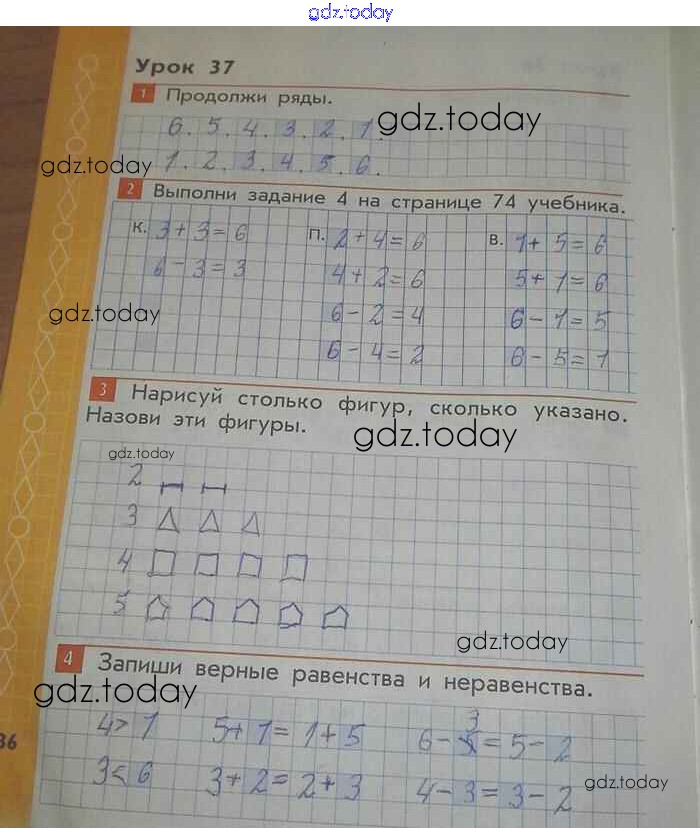 gdz.today
Урок 37
1 Продолжи ряды.
6. 5. 4. 3. 2. 1.
gdz.today
1. 2. 3. 4. 5. 6.
gdz.today
2 Выполни задание 4 на странице 74 учебника.
К. 3+3=6 П. 2+4=6 В. 1+5=6
6-3=3 4+2=6 5+1=6
gdz.today
6-2=4 6-1=5
6-4=2 6-5=1
3 Нарисуй столько фигур, сколько указано.
Назови эти фигуры.
gdz.today
gdz.today
2
3
4
5
gdz.today
4 Запиши верные равенства и неравенства.
gdz.today
4>1 5+1=1+5 6-3=5-2
36
3<6 3+2=2+3 4-3=3-2
gdz.today